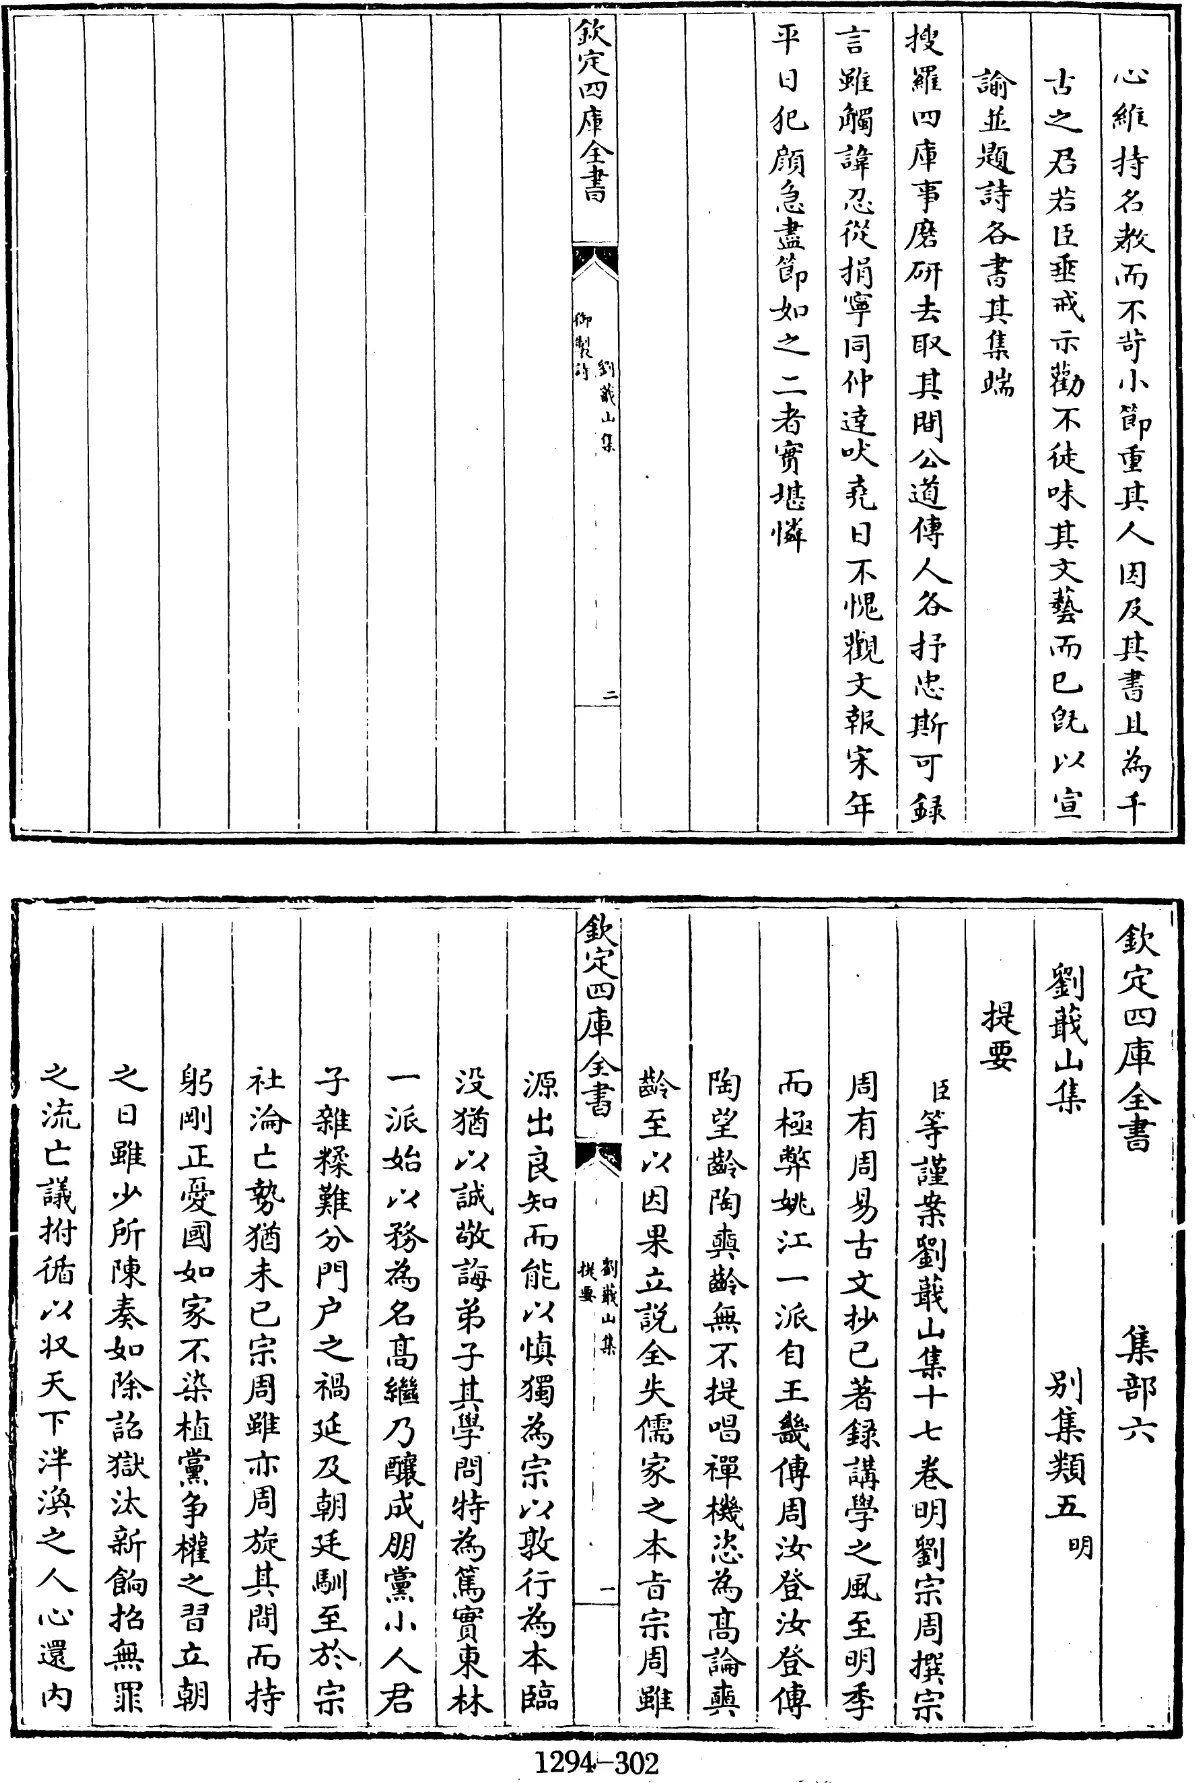 心維持名教而不苛小節重其人因及其書且為千
古之君若臣垂戒示勸不徒味其文藝而已既以宣
諭並題詩各書其集端
搜羅四庫事磨研去取其間公道傳人各抒忠斯可録
言雖觸諱忍從捐寧同仲達吠堯日不愧觀文報宋年
平日犯顔急盡節如之二者實堪憐
欽定四庫全書
劉蕺山集
御製詩
二
欽定四庫全書 集部六
劉蕺山集 别集類五明
提要
臣等謹案劉蕺山集十七卷明劉宗周撰宗
周有周易古文抄已著録講學之風至明季
而極弊姚江一派自王畿傳周汝登汝登傳
陶望齡陶奭齡無不提唱禪機恣為髙論奭
齡至以因果立説全失儒家之本旨宗周雖
欽定四庫全書
劉蕺山集
提要
一
源出良知而能以慎獨為宗以敦行為本臨
没猶以誠敬誨弟子其學問特為篤實東林
一派始以務為名髙繼乃釀成朋黨小人君
子雜糅難分門户之禍延及朝廷馴至於宗
社淪亡勢猶未已宗周雖亦周旋其間而持
躬剛正憂國如家不染植黨争權之習立朝
之日雖少所陳奏如除詔獄汰新餉招無罪
之流亡議拊循以收天下泮渙之人心還内
1294—302